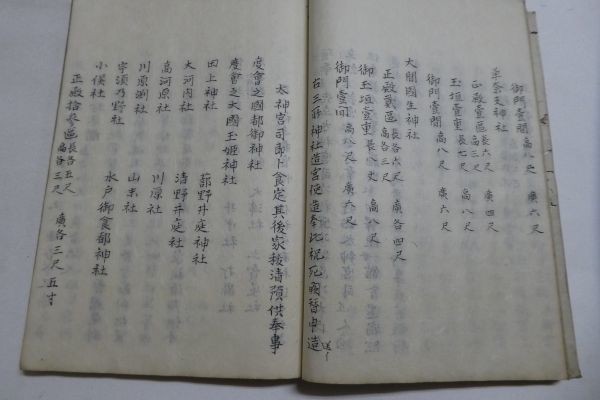 御門壹間 高八尺 廣六尺
草奈支神社
正殿壹區 長六尺 高三尺 廣四尺
玉垣壹重 長七尺 高八尺
御門壹間 高八尺 廣六尺
大間國生神社
正殿貳區 長各六尺 高各三尺 廣各四尺
御玉垣壹重 長八丈 高八尺
御門壹間 高八尺 廣六尺
右三所神社造宮使造奉此祝死闕暫申造
太神宮司即卜食定其後家祓清預供奉事
度會之國都御神社
度會之大國玉姬神社
田上神社 蔀野井庭神社
大河内社 清野井庭社
高河原社 川原社
川原淵社 山末社
宇須乃野社 水戸御食都神社
小俣社
正殿拾參區 長各五尺 高各三尺 廣各三尺五寸